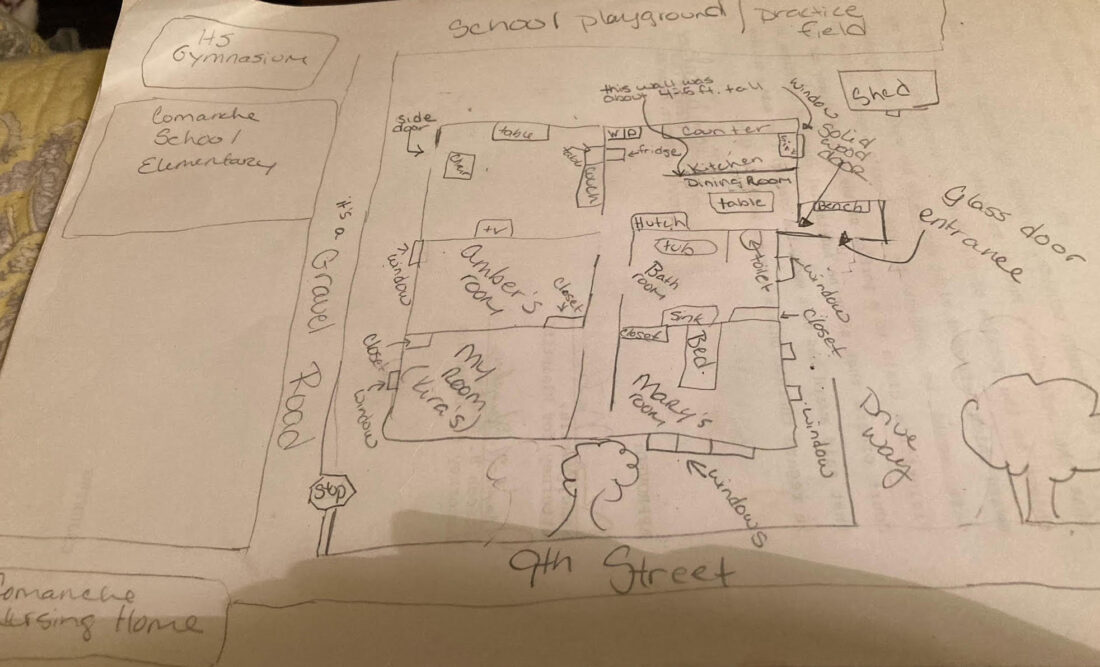 School playground / Practice
field
HS
Gymnasium
Comanche
School
Elementary
it's a Gravel Road
Stop
9th Street
Comanche
Nursing Home
Shed
this wall was
about 4-5 ft. tall
window
Solid
wood
door
side
door
table
chair
W D
fridge
couch
Counter
Kitchen
Dining Room
table
Bench
Glass door
entrance
Hutch
tub
toilet
Bath
room
Sink
window
closet
tv
window
Amber's
room
closet
closet
window
My
Room
(Kira's)
closet
Bed
Mary's
room
window
windows
Drive
way